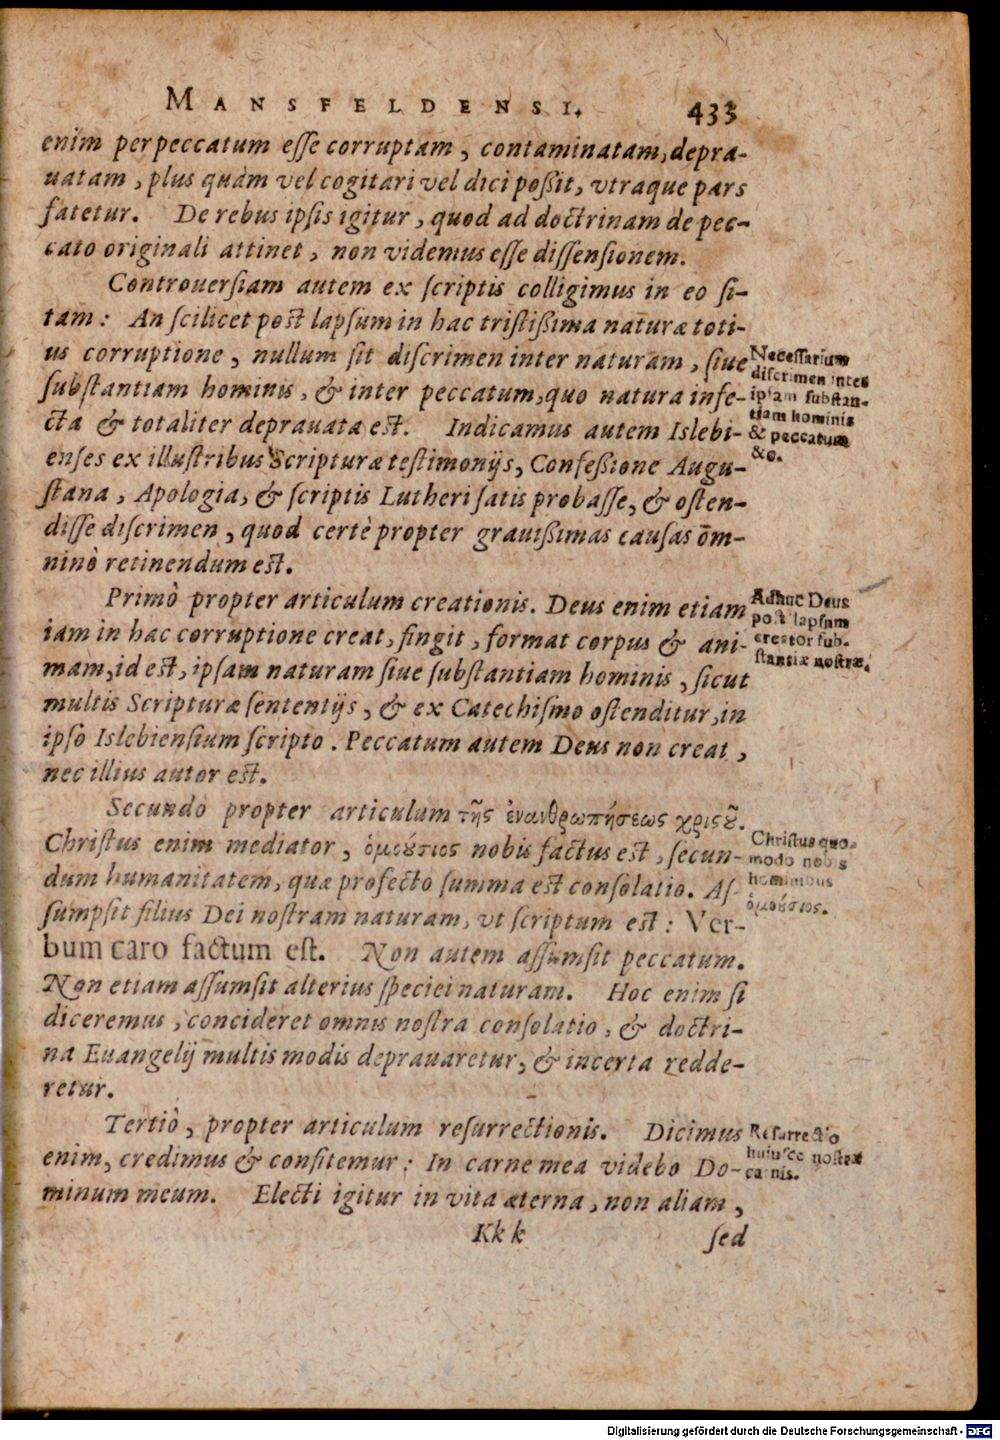 MANSFELDENSI. 433
enim per peccatum eſſe corruptam, contaminatam, depra-
uatam, plus quàm vel cogitari vel dici poßit, vtraque pars
fatetur. De rebus ipſis igitur, quod ad doctrinam de pec-
cato originali attinet, non videmus eſſe diſſenſionem.
Controuerſiam autem ex ſcriptis colligimus in eo ſi-
tam: An ſcilicet post lapſum in hac triſtißima naturæ toti-
us corruptione, nullum ſit diſcrimen inter naturam, ſiue
ſubſtantiam hominis, & inter peccatum, quo natura infe-
cta & totaliter deprauata est. Indicamus autem Islebi-
enſes ex illuſtribus Scripturæ teſtimonijs, Confeßione Augu-
ſtana, Apologia, & ſcriptis Lutheri ſatis probaſſe, & oſten-
diſſe diſcrimen, quod certè propter grauißimas cauſas om̄-
ninò retinendum est.
Neceſſarium
diſcrimen inter
ipſam ſubſtan-
tiam hominis
& peccatum
&c.
Primò propter articulum creationis. Deus enim etiam
iam in hac corruptione creat, fingit, format corpus & ani-
mam, id est, ipſam naturam ſiue ſubſtantiam hominis, ſicut
multis Scripturæ ſententijs, & ex Catechiſmo oſtenditur, in
ipſo Islebienſium ſcripto. Peccatum autem Deus non creat,
nec illius autor est.
Adhuc Deus
poſt lapſum
creator ſub-
ſtantiæ noſtræ.
Secundò propter articulum τῆς ἐνανθρωπήσεως χριςοῦ.
Chriſtus enim mediator, ὁμούσιος nobis factus est, ſecun-
dum humanitatem, quæ profecto ſumma est conſolatio. Aſ-
ſumpſit filius Dei noſtram naturam, vt ſcriptum est: Ver-
bum caro factum eſt. Non autem aſſumſit peccatum.
Non etiam aſſumſit alterius ſpeciei naturam. Hoc enim ſi
diceremus, concideret omnis noſtra conſolatio, & doctri-
na Euangelij multis modis deprauaretur, & incerta redde-
retur.
Chriſtus quo-
modo nobis
hominibus
ὁμούσιος.
Tertiò, propter articulum reſurrectionis. Dicimus
enim, credimus & confitemur: In carne mea videbo Do-
minum meum. Electi igitur in vita æterna, non aliam,
Reſurrectio
huiuſce noſtræ
carnis.
Kk k ſed
Digitalisierung gefördert durch die Deutsche Forschungsgemeinschaft - DFG